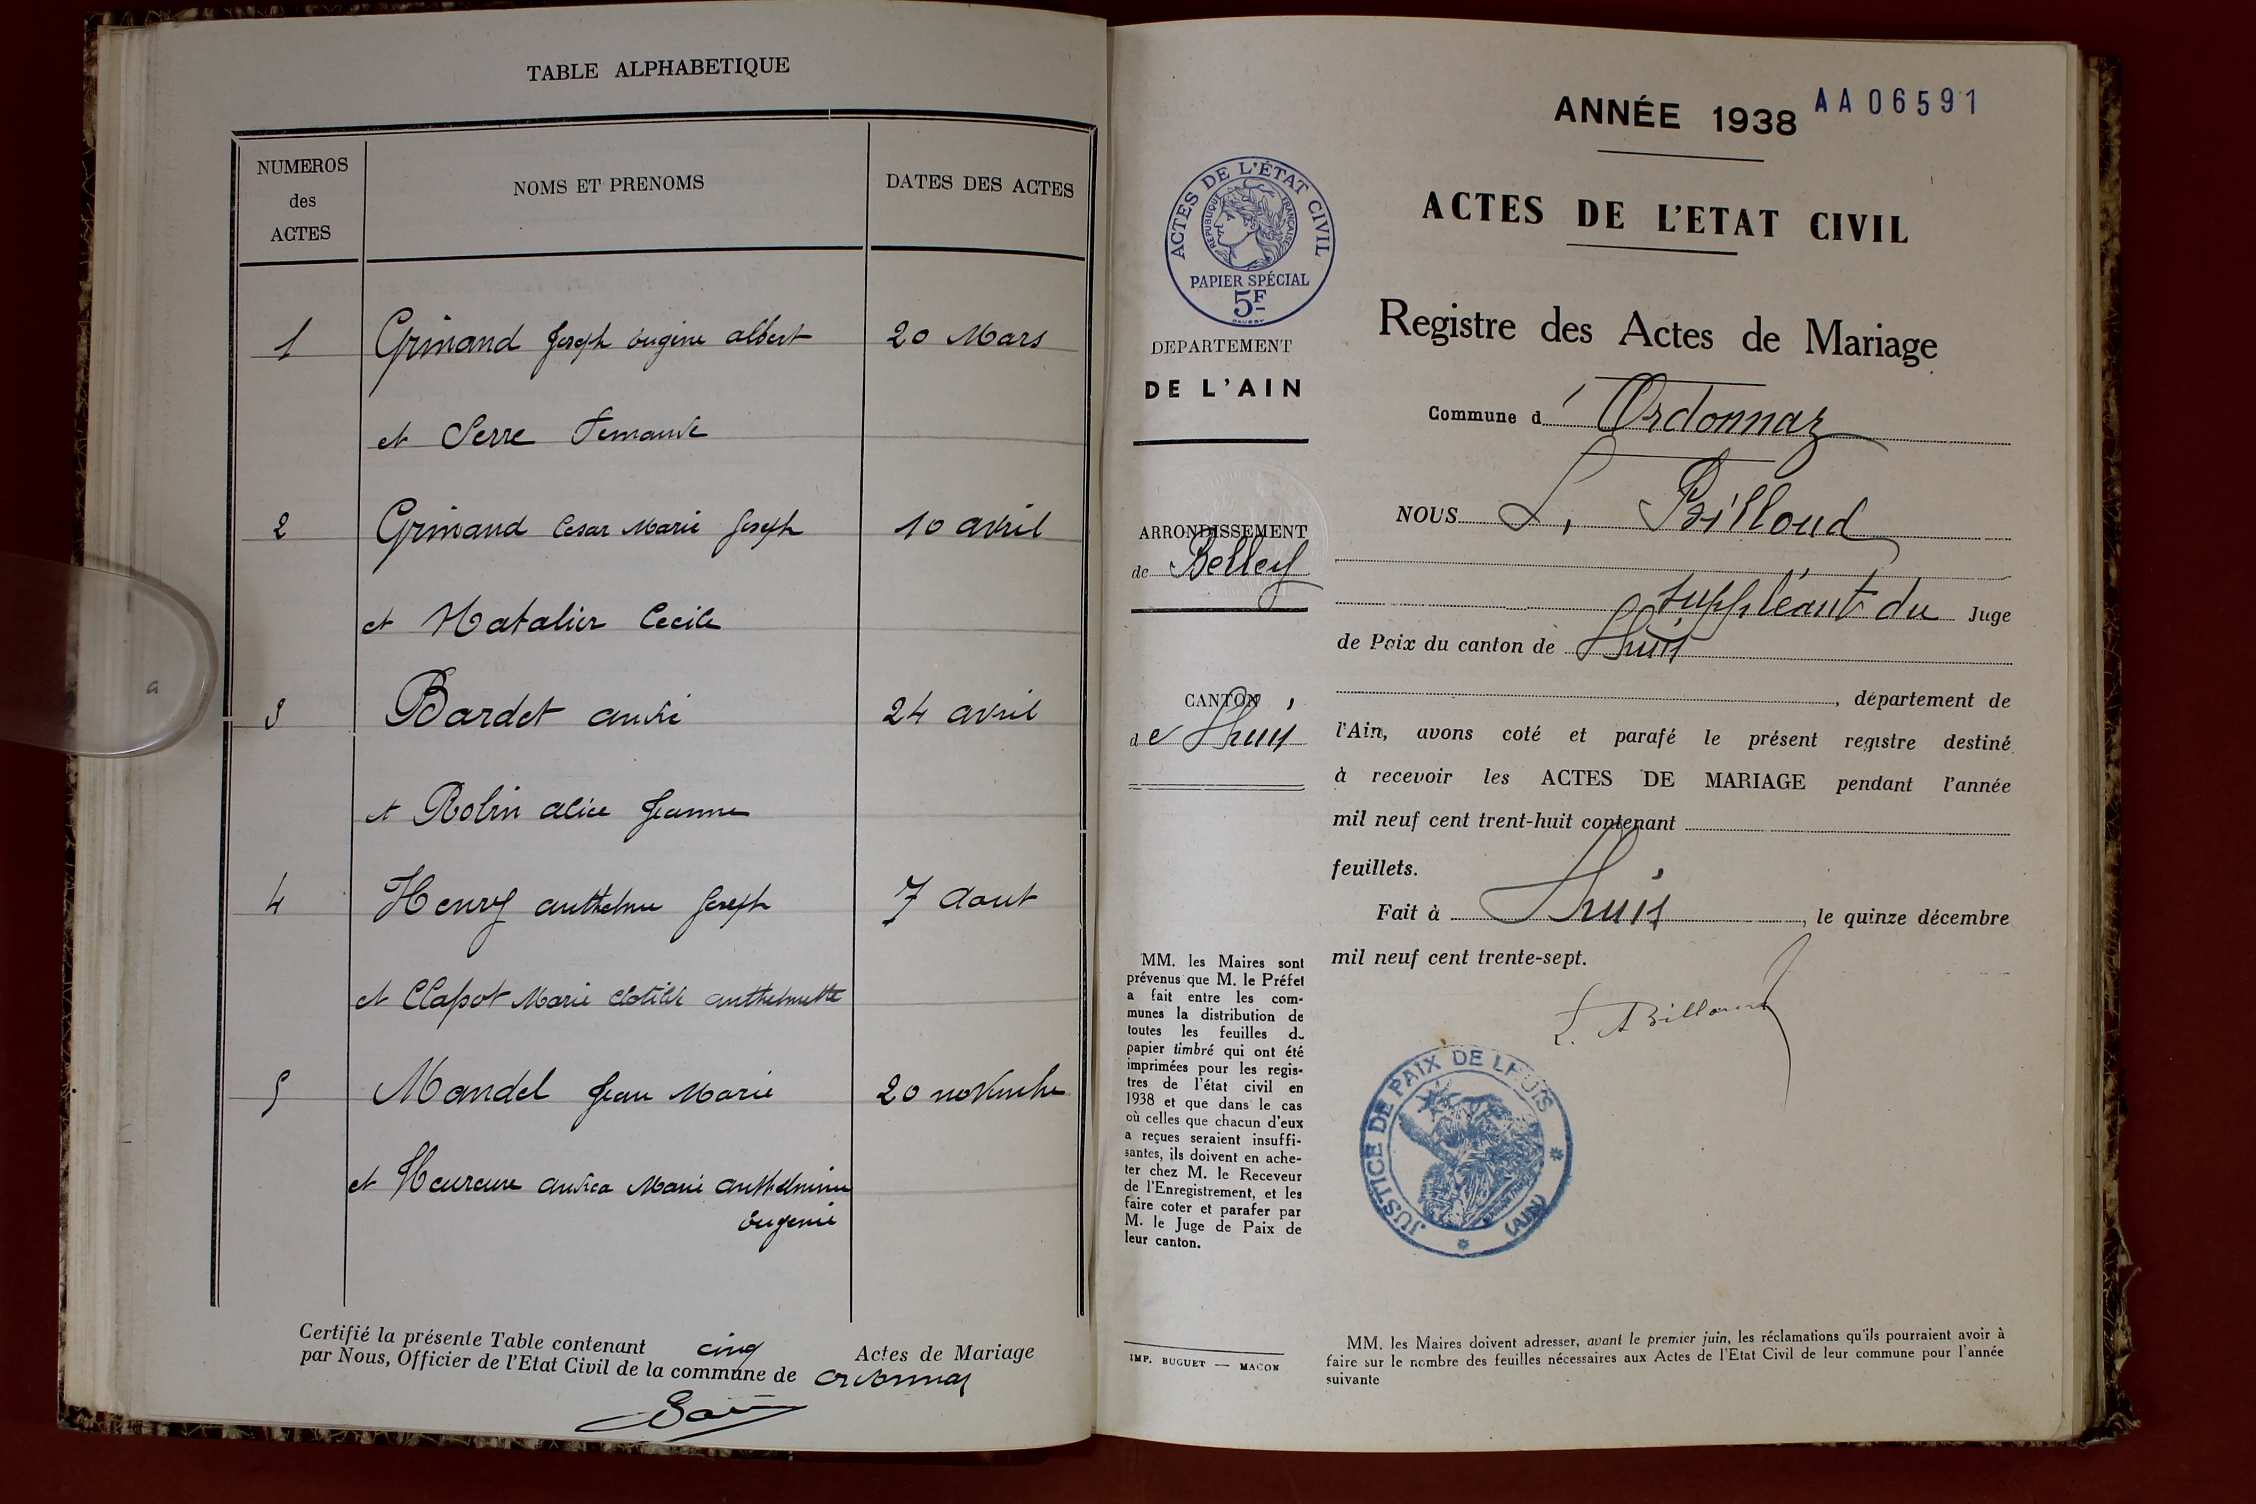 TABLE ALPHABETIQUE
NUMEROS des ACTES
NOMS ET PRENOMS
DATES DES ACTES
1 Grinand Joseph Eugène Albert 20 Mars
et Serre Fernande
2 Grinand Cesar Marie Joseph 10 avril
et Natalier Cecile
3 Bardet André 24 avril
et Robin Alice Jeanne
4 Henry Anthelme Joseph 7 Aout
et Clapot Marie Clotilde Anthelmette
5 Mandel Jean Marie 20 novembre
et Heureure Andrea Marie Anthelmine
Eugenie
Certifié la présente Table contenant cinq Actes de Mariage
par Nous, Officier de l'Etat Civil de la commune de Ordonnaz
ANNÉE 1938 AA06591
ACTES DE L'ETAT CIVIL
Registre des Actes de Mariage
Commune d'Ordonnaz
NOUS L. Billoud
suppléant du Juge
de Paix du canton de Lhuis
, département de
l'Ain, avons coté et parafé le présent registre destiné
à recevoir les ACTES DE MARIAGE pendant l'année
mil neuf cent trent-huit contenant
feuillets.
Fait à Lhuis, le quinze décembre
mil neuf cent trente-sept.
L. Billoud
JUSTICE DE PAIX DE LHUIS
(AIN)
MM. les Maires doivent adresser, avant le premier juin, les réclamations qu'ils pourraient avoir à
faire sur le nombre des feuilles nécessaires aux Actes de l'Etat Civil de leur commune pour l'année
suivante
ACTES DE L'ÉTAT CIVIL
RÉPUBLIQUE FRANÇAISE
PAPIER SPÉCIAL
5F
DEPARTEMENT
DE L'AIN
ARRONDISSEMENT
de Belley
CANTON
de Lhuis
MM. les Maires sont
prévenus que M. le Préfet
a fait entre les com-
munes la distribution de
toutes les feuilles du
papier timbré qui ont été
imprimées pour les regis-
tres de l'état civil en
1938 et que dans le cas
où celles que chacun d'eux
a reçues seraient insuffi-
santes, ils doivent en ache-
ter chez M. le Receveur
de l'Enregistrement, et les
faire coter et parafer par
M. le Juge de Paix de
leur canton.
IMP. BUGUET — MACON